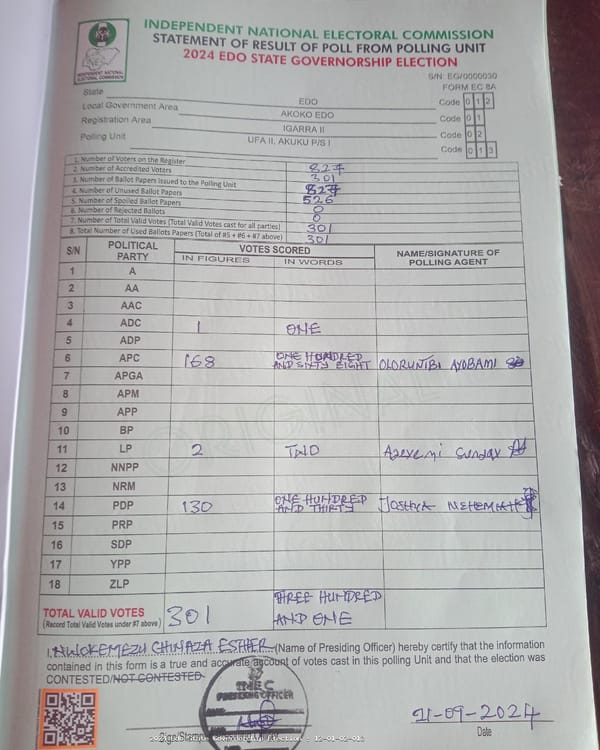 INDEPENDENT NATIONAL ELECTORAL COMMISSION
STATEMENT OF RESULT OF POLL FROM POLLING UNIT
2024 EDO STATE GOVERNORSHIP ELECTION
INDEPENDENT NATIONAL
ELECTORAL COMMISSION
S/N: EG/0000030
FORM EC 8A
State EDO Code 0 1 2
Local Government Area AKOKO EDO Code 0 1
Registration Area IGARRA II Code 0 2
Polling Unit UFA II, AKUKU P/S I Code 0 1 3
1. Number of Voters on the Register 827
2. Number of Accredited Voters 301
3. Number of Ballot Papers Issued to the Polling Unit 827
4. Number of Unused Ballot Papers 526
5. Number of Spoiled Ballot Papers 0
6. Number of Rejected Ballots 0
7. Number of Total Valid Votes (Total Valid Votes cast for all parties) 301
8. Total Number of Used Ballots Papers (Total of #5 + #6 + #7 above) 301
S/N POLITICAL PARTY VOTES SCORED NAME/SIGNATURE OF POLLING AGENT
IN FIGURES IN WORDS
1 A
2 AA
3 AAC
4 ADC 1 ONE
5 ADP
6 APC 168 ONE HUNDRED AND SIXTY EIGHT OLORUNTOBI AYOBAMI
7 APGA
8 APM
9 APP
10 BP
11 LP 2 TWO Adeyemi Sunday
12 NNPP
13 NRM
14 PDP 130 ONE HUNDRED AND THIRTY JOSHUA
15 PRP
16 SDP
17 YPP
18 ZLP
ORIGINAL
TOTAL VALID VOTES 301 THREE HUNDRED AND ONE
(Record Total Valid Votes under #7 above)
I, NWOKEMEZU CHINAZA ESTHER (Name of Presiding Officer) hereby certify that the information
contained in this form is a true and accurate account of votes cast in this polling Unit and that the election was
CONTESTED/NOT CONTESTED
INEC
PRESIDING OFFICER
21-09-2024
Date